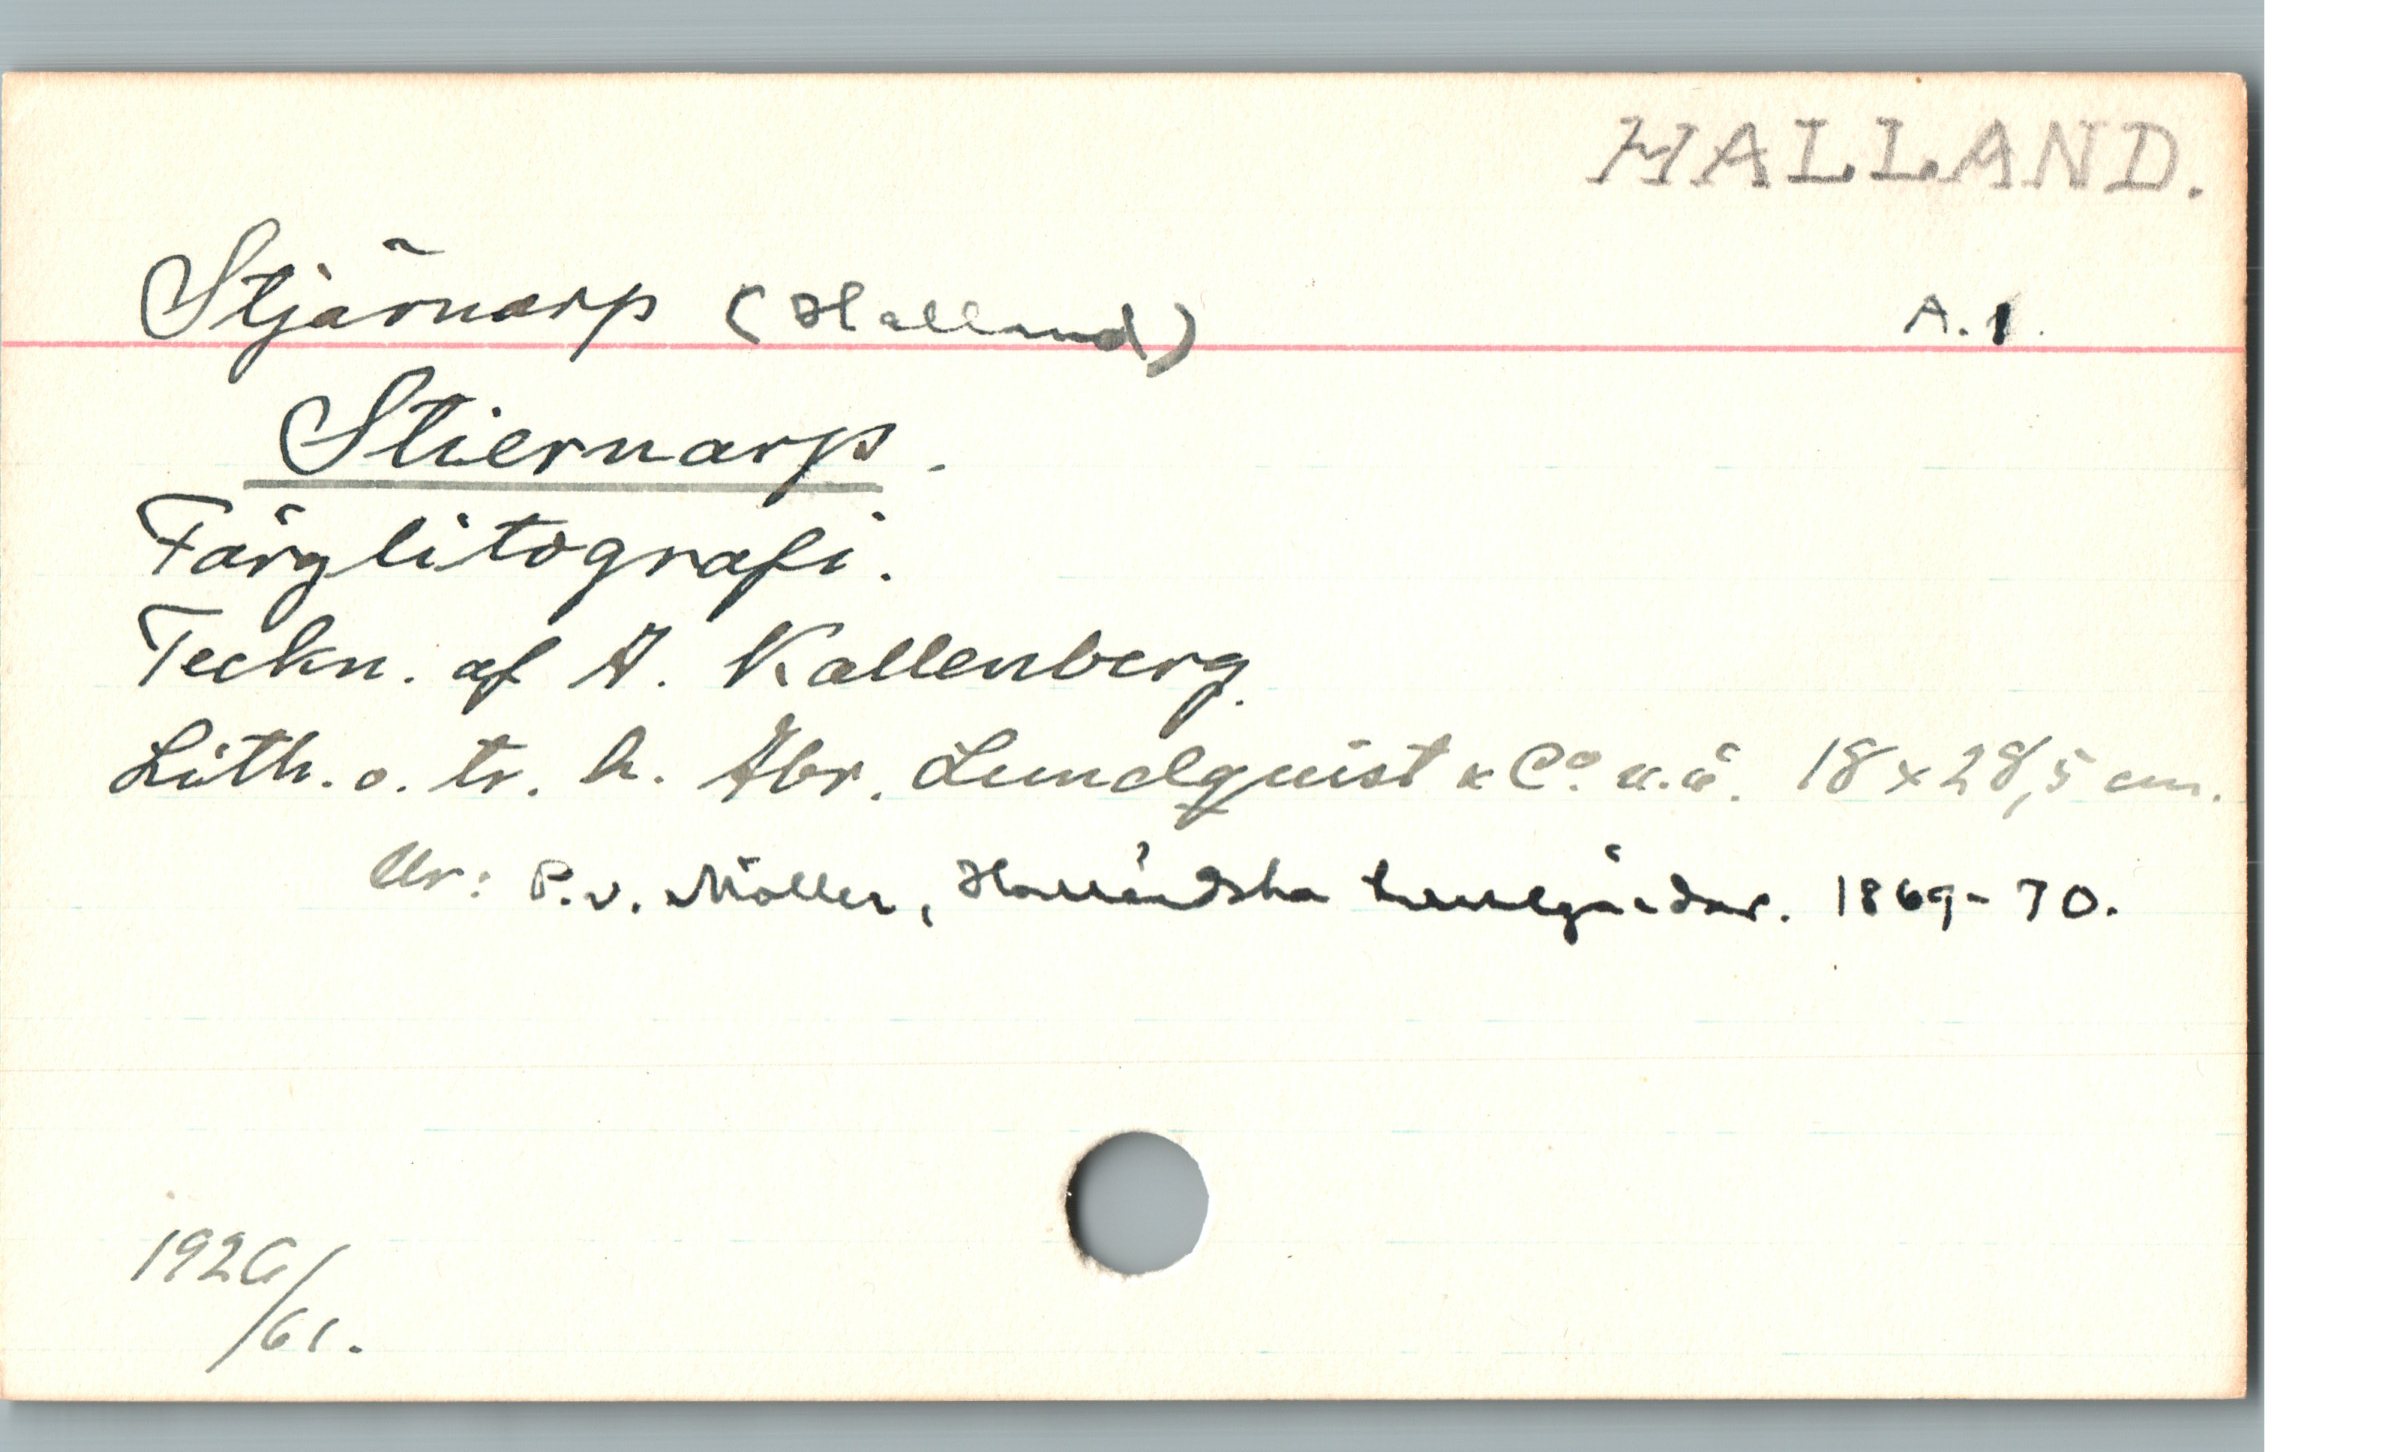 HALLAND.
Stjärnarp (Halland) A.1.
Stiernarp.
Färglitografi.
Teckn. af A. Kallenberg.
Lith. o. tr. h. Abr. Lundquist & Co. u.å. 18 x 28,5 cm.
Ur: P. v. Möller, Halländska herregårdar. 1869-70.
1926/
61.